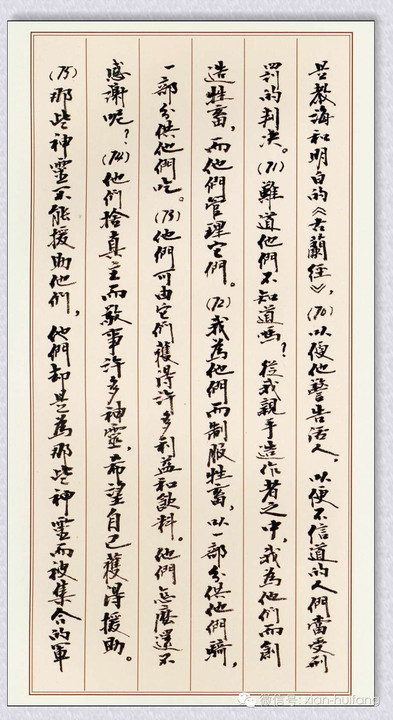 是教誨和明白的《古蘭經》，(70)以便他警告活人，以便不信道的人們當受刑
罰的判决。(71)難道他們不知道嗎？從我親手造作者之中，我為他們而創
造牲畜，而他們管理它們。(72)我為他們而制服牲畜，以一部分供他們騎，
一部分供他們吃。(73)他們可由它們獲得許多利益和飲料。他們怎麽還不
感謝呢？(74)他們捨真主而敬事許多神靈，希望自己獲得援助。
(75)那些神靈不能援助他們，他們却是為那些神靈而被集合的軍
微信号: xian-huifang